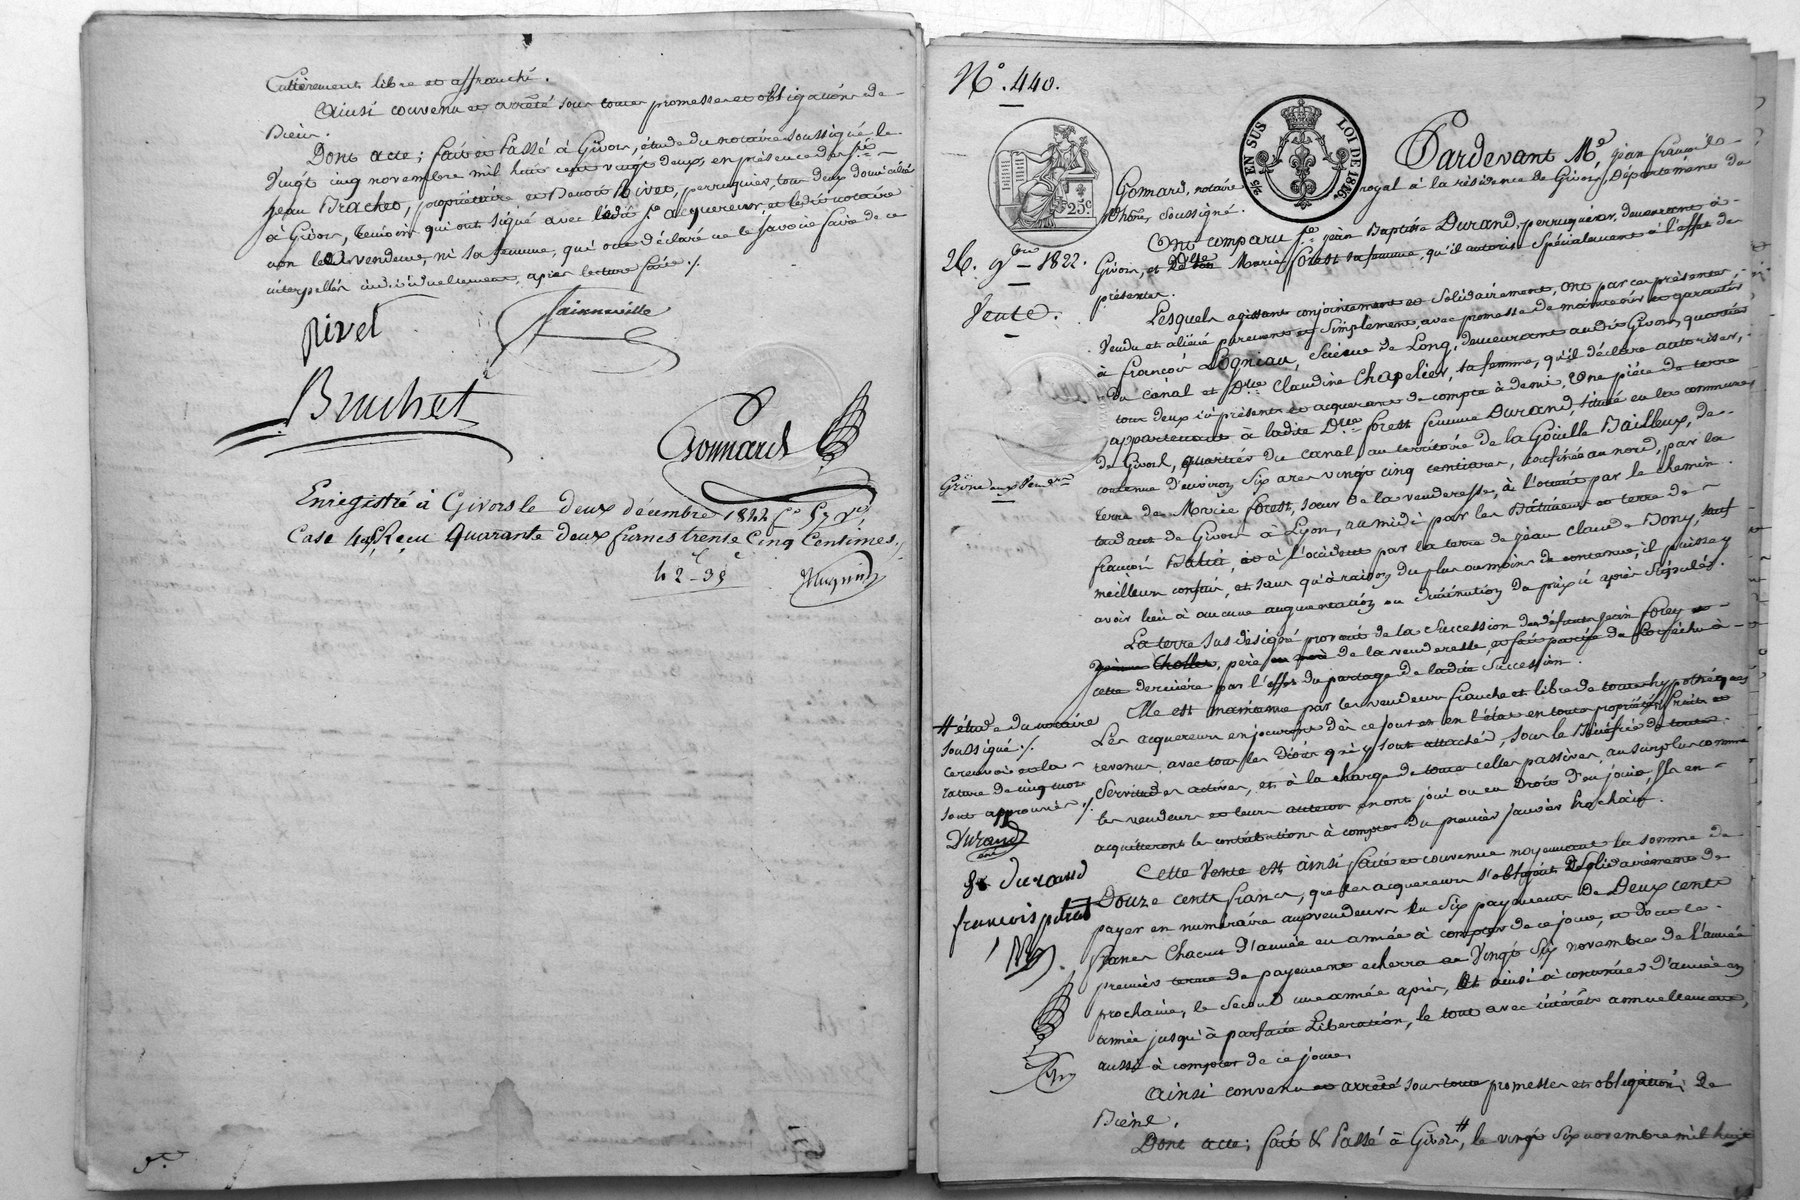 Entièrement libre et affranchi.
Ainsi convenu et arrêté sous toutes promesses et obligations de
Biens.
Dont acte; fait et Passé à Givors, étude du notaire soussigné le
Vingt cinq novembre mil huit cent vingt deux, en présence des srs
Jean Brachet, propriétaire et Benoit Rivet, perruquier, tous deux domiciliés
à Givors, témoins qui ont signé avec ledit sr acquéreur, et ledit notaire
non les vendeur, ni sa femme, qui ont déclaré ne le savoir faire de ce
interpellés individuellement, après lecture faite ./.
Rivet
Bruchet
Gonnard
Enregistré à Givors le deux décembre 1822 fo 57 Vo
Case 4 Reçu Quarante deux francs trente Cinq Centimes,
42-35
No. 440.
25 EN SUS
LOI DE 1816.
25c
Pardevant Me jean francois
Gonard, notaire royal à la résidence de Givors, Département du
Rhône, soussigné.
Ont comparu sr jean Baptiste Durand, perruquier, demeurant à
26. 9bre 1822.
Givors, et Marie forest sa femme, qu'il autorise Spécialement à l'effet des
présentes.
Vente.
Lesquels agissant conjointement et Solidairement, ont par ces présentes,
Vendu et aliéné purement et simplement, avec promesse de maintenir et garantir
à francois Logniau, Scieur de Long, demeurant audit Givors, quartier
Du Canal et Dlle Claudine Chapelier, sa femme, qu'il déclare autoriser,
tous deux ici présents et acquérants de compte à demi, Une pièce de terre
appartenant à ladite Dlle forest femme Durand, située en la commune
de Givors, quartier du Canal au territoire de la Gouille Bailleux, de
contenue d'environ Six ares vingt cinq centiares, confinée au nord, par la
terre de Marie forest, soeur de la venderesse, à l'orient par le chemin
tendant de Givors à Lyon, au midi par les Bâtiments et terre de
francois et à l'occident par la terre de jean Claude Bony, sauf
meilleurs confins, et sans qu'à raison du plus ou moins de contenue, il puisse y
avoir lieu à aucune augmentation ou diminution du prix ci après Stipulé.
La terre sus désignée provient de la Succession de défunt jean forey et
Chollet, père ou mère de la venderesse, et fait partie de l'échu à
cette dernière par l'effet du partage de ladite Succession.
Elle est maintenue par les vendeurs franche et libre de toutes hypothèques
# étude du notaire
soussigné ./.
Ce renvoi et la
rature de cinq mots
sont approuvés ./.
Les acquéreurs en jouiront dès ce jour en en l'état en toute propriété, fruits et
revenus, avec tous les Droits qui y sont attachés, sous le Bénéfice de toutes
Servitudes actives, et à la charge de toutes celles passives, au surplus comme
les vendeurs et leurs auteurs en ont joui ou eu Droit d'en jouir, Ils en
acquitteront les contributions à compter du premier janvier Prochain.
Durand
Durand
francois
Cette Vente est ainsi faite et convenue moyennant la somme de
Douze cents francs, que les acquéreurs s'obligent Solidairement de
payer en numéraire aux vendeurs En Six payements de Deux cents
francs Chacun d'année en année à compter de ce jour, et dont le
premier terme de payement echerra au Vingt Six novembre de l'année
prochaine, le Second une année après, Et ainsi à continuer d'année en
année jusqu'à parfaite Libération, le tout avec intérêts annuellement,
aussi à compter de ce jour.
Ainsi convenu et arrêté sous toutes promesses et obligations, De
Biens.
Dont acte; fait & Passé à Givors #, le vingt Six novembre mil huit